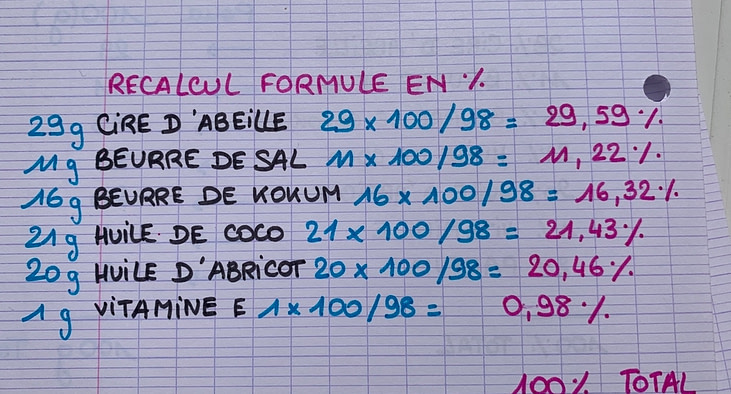 RECALCUL FORMULE EN %
29g CIRE D'ABEILLE 29 x 100/98 = 29,59 %
11g BEURRE DE SAL 11 x 100/98 = 11,22 %
16g BEURRE DE KOKUM 16 x 100/98 = 16,32 %
21g HUILE DE COCO 21 x 100/98 = 21,43 %
20g HUILE D'ABRICOT 20 x 100/98 = 20,46 %
1g VITAMINE E 1 x 100/98 = 0,98 %
100% TOTAL